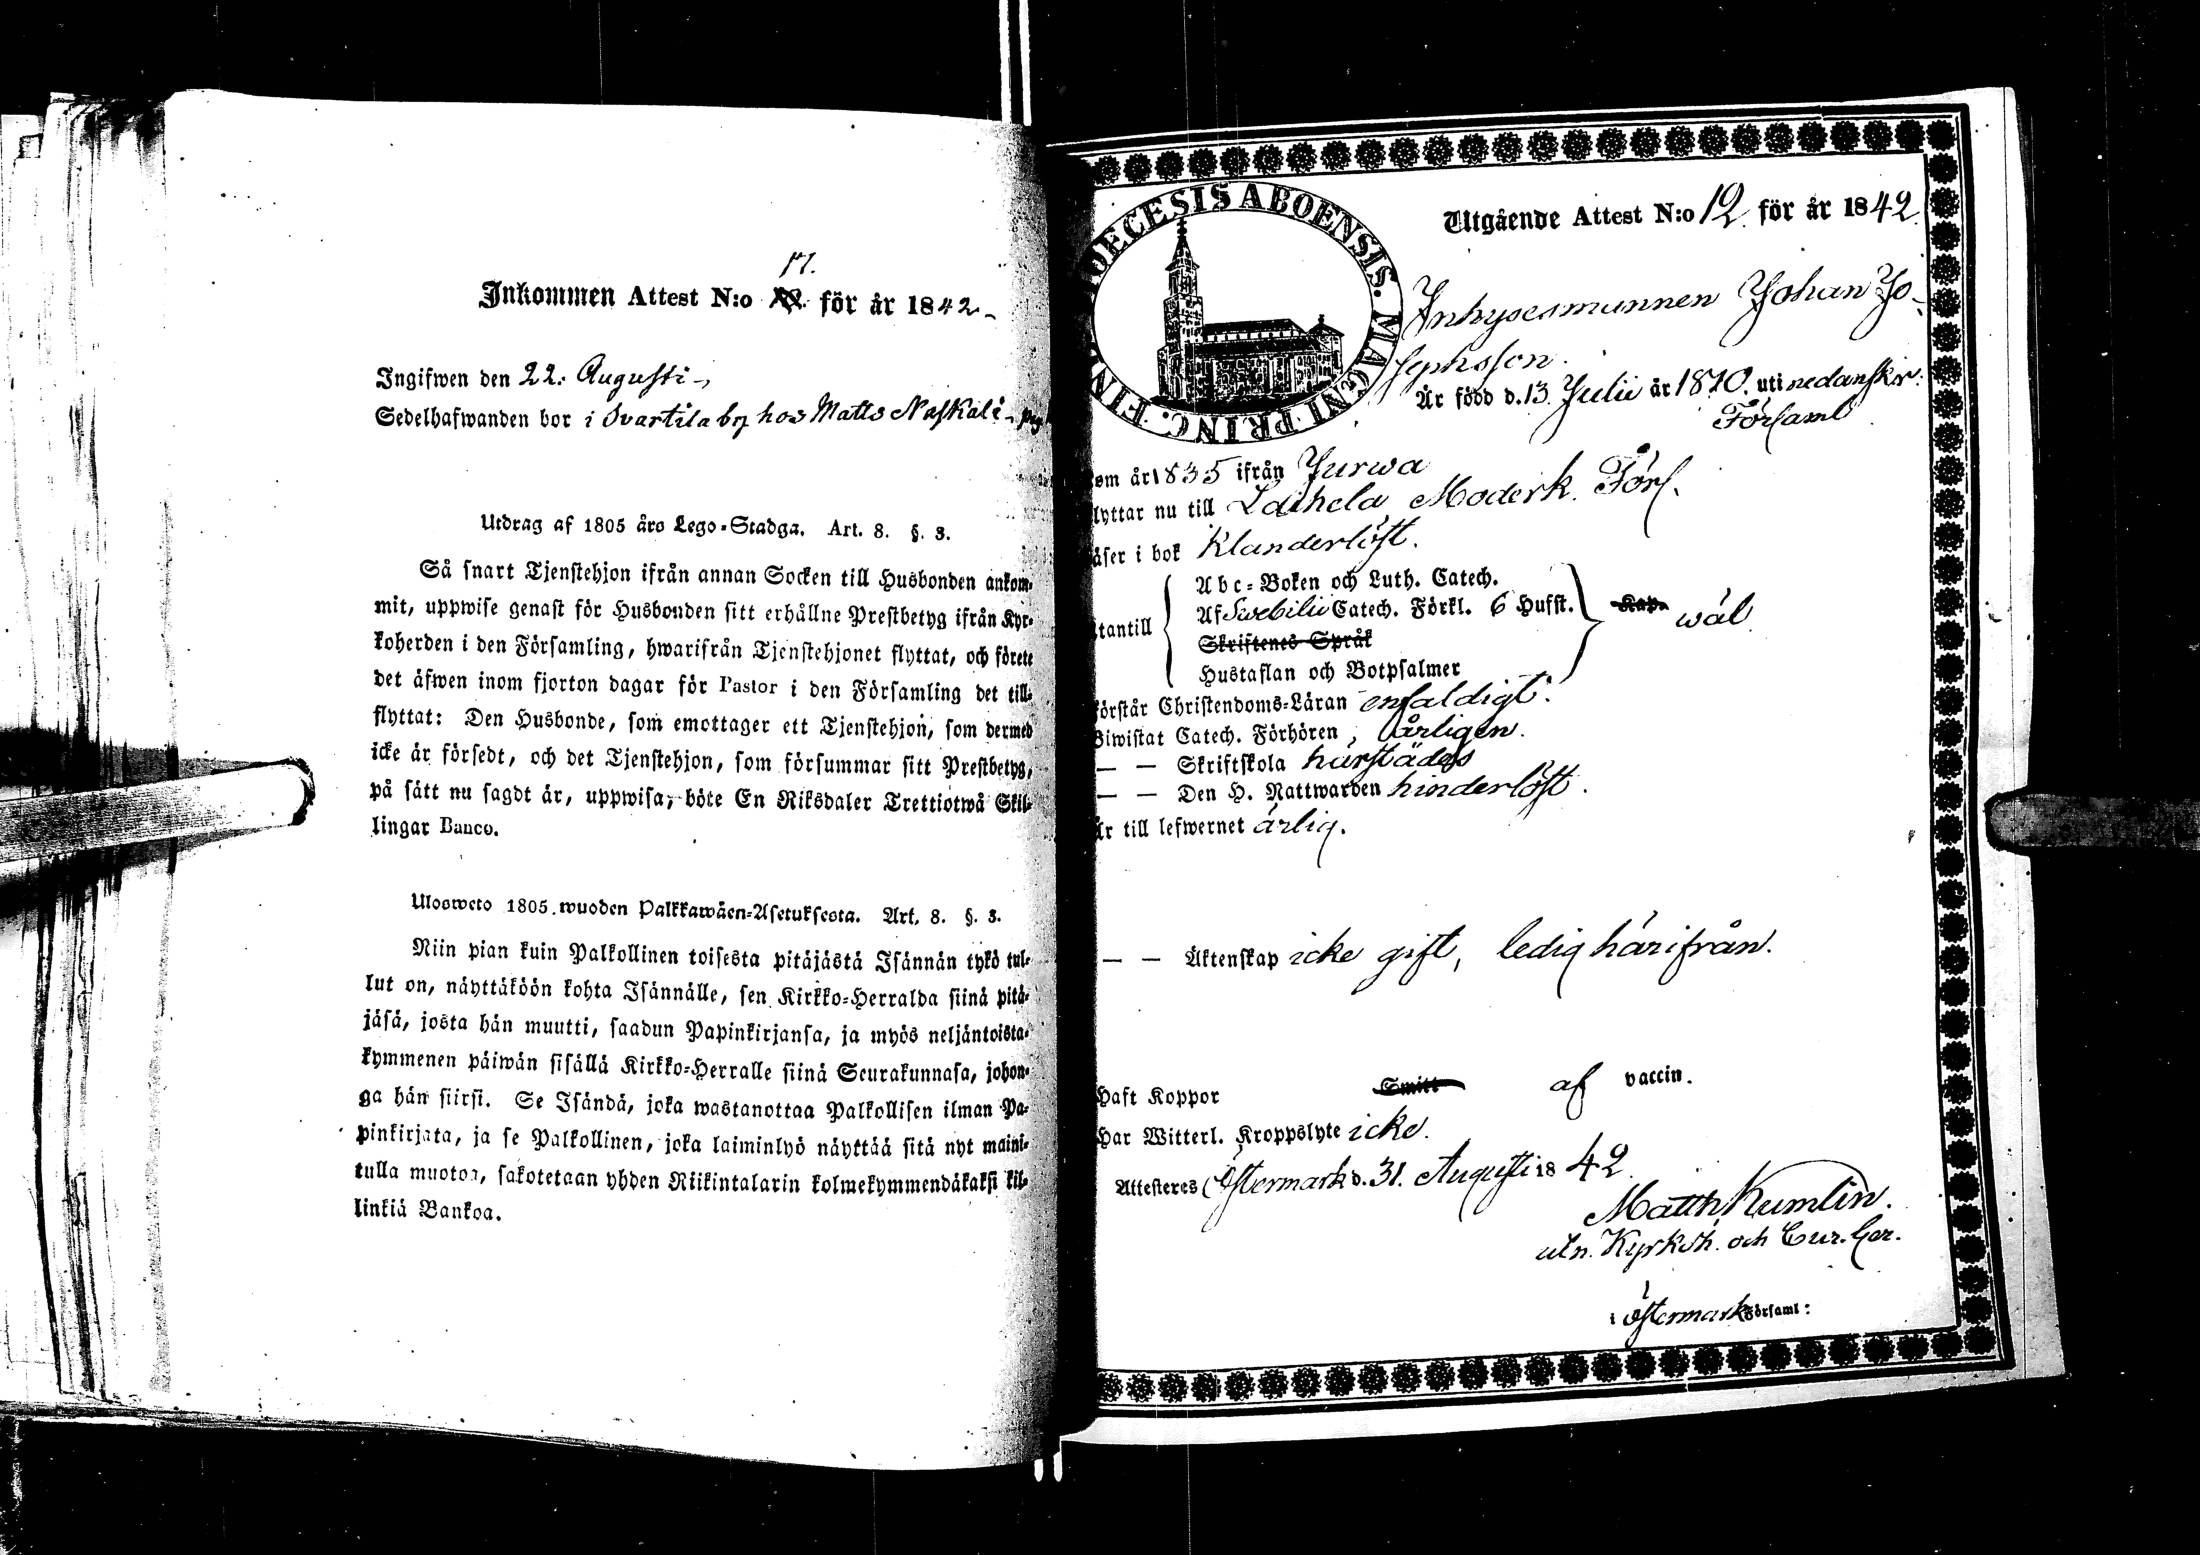 Inkommen Attest N:o 17. för år 1842.
Ingifwen den 22. Augusti
Sedelhafwanden bor i Svartila by hos Matts Naskali
Utdrag af 1805 års Lego-Stadga. Art. 8. §. 3.
Så snart Tjenstehjon ifrån annan Socken till Husbonden ankom-
mit, uppwise genast för Husbonden sitt erhållne Prestbetyg ifrån Kyr-
koherden i den Församling, hwarifrån Tjenstehjonet flyttat, och förete
det äfwen inom fjorton dagar för Pastor i den Församling det till-
flyttat: Den Husbonde, som emottager ett Tjenstehjon, som dermed
icke är försedt, och det Tjenstehjon, som försummar sitt Prestbetyg,
på sätt nu sagdt är, uppwisa, böte En Riksdaler Trettiotwå Skil-
lingar Banco.
Ulosweto 1805 wuoden Palkkawäen-Asetuksesta. Art. 8. §. 3.
Niin pian kuin Palkollinen toisesta pitäjästä Isännän tykö tul-
lut on, näyttäköön kohta Isännälle, sen Kirkko-Herralda siinä pitä-
jäsä, josta hän muutti, saadun Papinkirjansa, ja myös neljäntoista-
kymmenen päiwän sisällä Kirkko-Herralle siinä Seurakunnasa, johon-
ga hän siirsi. Se Isändä, joka wastanottaa Palkollisen ilman Pa-
pinkirjata, ja se Palkollinen, joka laiminlyö näyttää sitä nyt maini-
tulla muotoa, sakotetaan yhden Riikintalarin kolmekymmendäkaksi kil-
linkiä Bankoa.
DIOECESIS ABOENSIS. MAGNI PRINC. FIN
Utgående Attest N:o 12 för år 1842.
Inhysesmannen Johan Jo-
sephsson.
Är född d. 13 Julii år 1810. uti nedanskr.
Församl
om år 1835 ifrån Jurwa
lyttar nu till Laihela Moderk. Förs.
äser i bok Klanderlöst.
Abc-Boken och Luth. Catech.
Af Swebilii Catech. Förkl. 6 Hufst. Kap. wäl
tantill
Skriftenes Språk
Hustaflan och Botpsalmer
förstår Christendoms-Läran enfaldigt.
Biwistat Catech. Förhören, årligen.
— — Skriftskola härstädes
— — Den H. Nattwarden hinderlöst.
Är till lefwernet ärlig.
— — Äktenskap icke gift, ledig härifrån.
Haft Koppor Smitt af vaccin.
Har Witterl. Kroppslyte icke.
Attesteres Östermark d. 31. Augusti 1842
Matth Kumlin.
utn. Kyrkoh. och Cur. Ger.
i Östermark Församl: